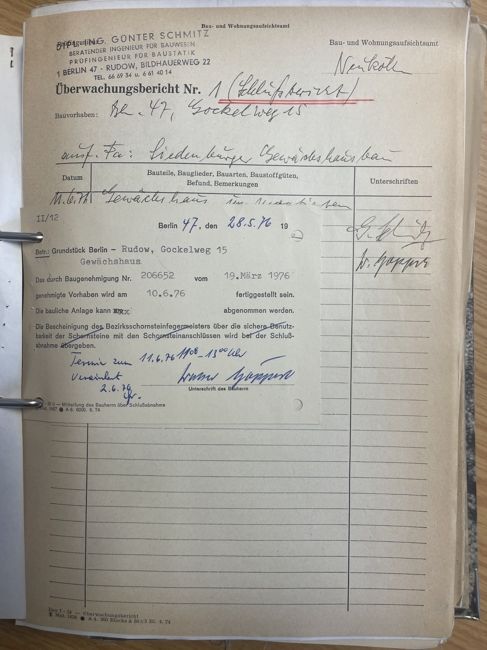 Bau- und Wohnungsaufsichtsamt
DIPL. ING. GÜNTER SCHMITZ
BERATENDER INGENIEUR FÜR BAUWESEN
PRÜFINGENIEUR FÜR BAUSTATIK
1 BERLIN 47 - RUDOW, BILDHAUERWEG 22
TEL. 66 69 34 u. 6 61 40 14
Bau- und Wohnungsaufsichtsamt
Neukölln
Überwachungsbericht Nr. 1 (Schlußbericht)
Bauvorhaben: Bln. 47, Gockelweg 15
ausf. Fa: Gewächshausbau
Datum
Bauteile, Bauglieder, Bauarten, Baustoffgüten,
Befund, Bemerkungen
Unterschriften
11.6.76 Gewächshaus
II/12
Berlin 47, den 28.5.76 19
Betr.: Grundstück Berlin – Rudow, Gockelweg 15
Gewächshaus
Das durch Baugenehmigung Nr. 206652 vom 19.März 1976
genehmigte Vorhaben wird am 10.6.76 fertiggestellt sein.
Die bauliche Anlage kann abgenommen werden.
Die Bescheinigung des Bezirksschornsteinfegermeisters über die sichere Benutz-
barkeit der Schornsteine mit den Schornsteinanschlüssen wird bei der Schluß-
abnahme übergeben.
Termin zum 11.6.76 - 13⁰⁰ Uhr
Vereinbart
2.6.76
Unterschrift des Bauherrn
Mitteilung des Bauherrn über Schlußabnahme
A 6. 6000. 4. 74
Überwachungsbericht
Mat. 1638